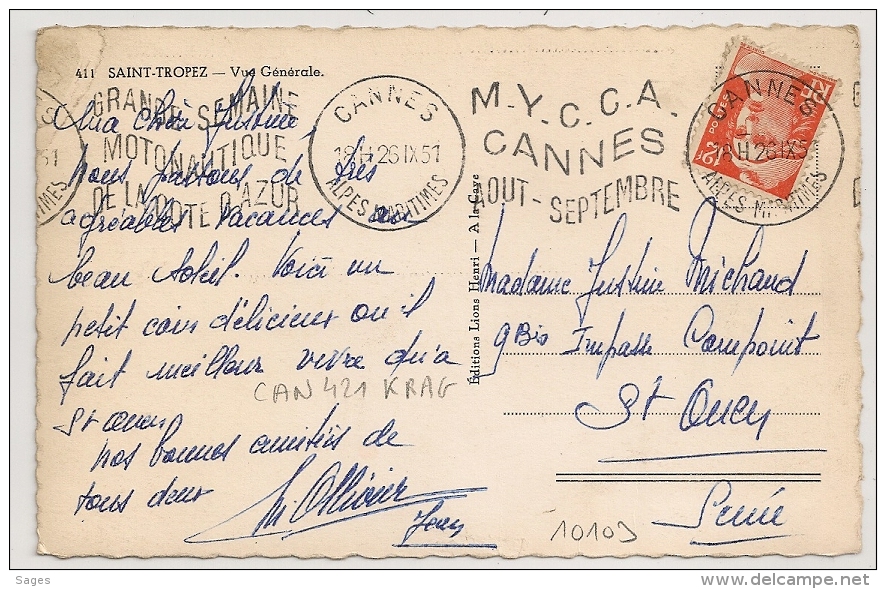 411 SAINT-TROPEZ — Vue Générale.
GRANDE SEMAINE
MOTONAUTIQUE
DE LA COTE D'AZUR
CANNES
18H 26 IX 51
ALPES-MARITIMES
M.Y.C.C.A.
CANNES
AOUT - SEPTEMBRE
CANNES
18H 26 IX 5
ALPES-MARITIMES
POSTES
Ma Chère Justine,
nous passons de très
agréables vacances au
beau soleil. Voici un
petit coin délicieux où il
fait meilleur vivre qu'à
St Ouen
nos bonnes amitiés de
tous deux
M. Ollivier
Jean
CAN 421 KRAG
Éditions Lions Henri — A la Cave
Madame Justine Michaud
9 Bis Impasse Compoint
St Ouen
Seine
10109
Sages
www.delcampe.net